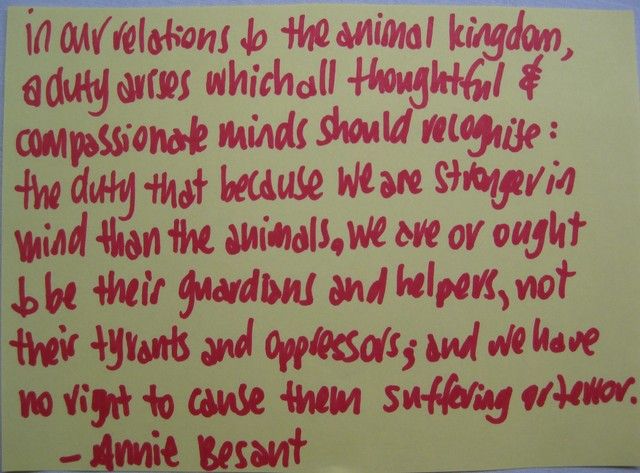 in our relations to the animal kingdom,
a duty arises which all thoughtful &
compassionate minds should recognise:
the duty that because we are stronger in
mind than the animals, we are or ought
to be their guardians and helpers, not
their tyrants and oppressors; and we have
no right to cause them suffering or terror.
- Annie Besant